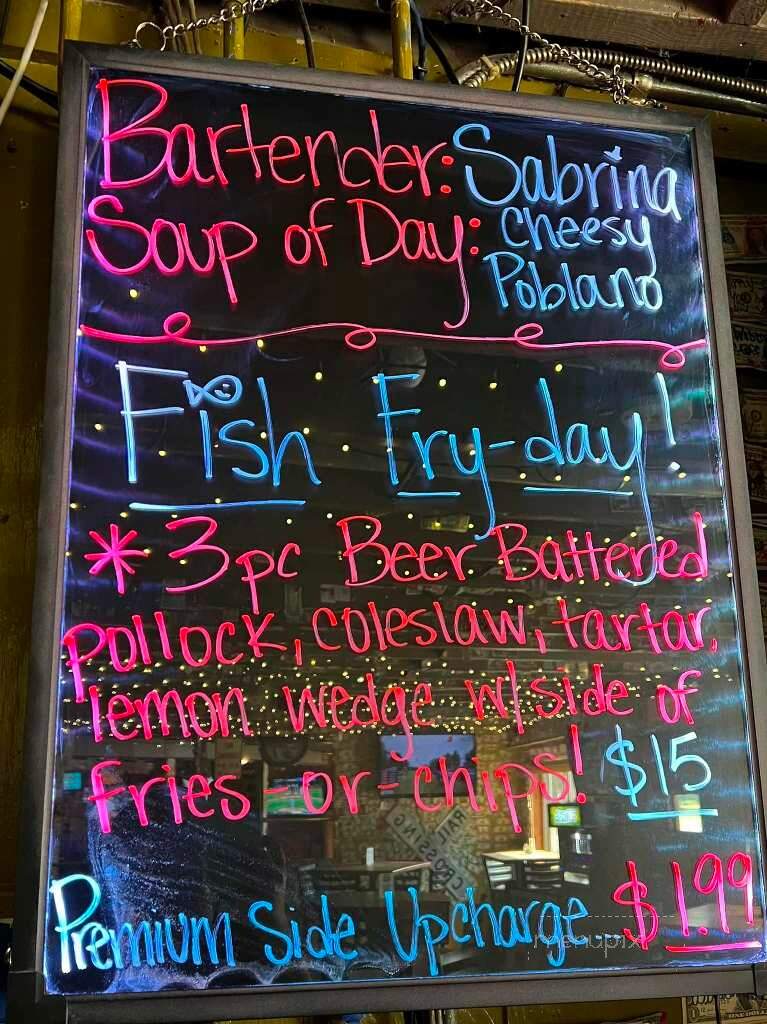 Bartender: Sabrina
Soup of Day: Cheesy
Poblano
Fish Fry-day!
* 3pc Beer Battered
pollock, coleslaw, tartar,
lemon wedge w/ side of
fries-or-chips! $15
Premium Side Upcharge $1.99
menupix
RAIL
CROSSING